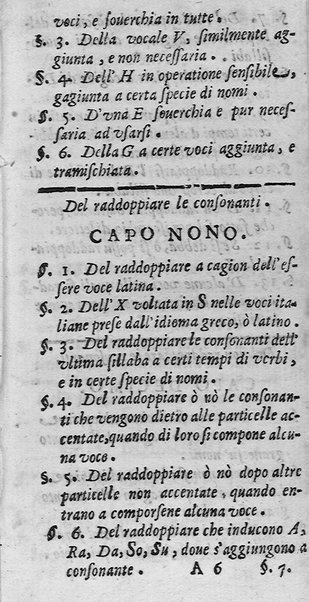 voci, e souerchia in tutte.
§. 3. Della vocale V, similmente ag-
giunta, e non necessaria.
§. 4. Dell'H in operatione sensibile,
gagiunta a certa specie di nomi.
§. 5. D'vna E souerchia e pur neces-
saria ad vsarsi.
§. 6. Della G a certe voci aggiunta, e
tramischiata.
Del raddoppiare le consonanti.
CAPO NONO.
§. 1. Del raddoppiare a cagion dell'es-
sere voce latina.
§. 2. Dell'X voltata in S nelle voci ita-
liane prese dall'idioma greco, ò latino.
§. 3. Del raddoppiare le consonanti dell'
vltima sillaba a certi tempi di verbi,
e in certe specie di nomi.
§. 4. Del raddoppiare ò nò le consonan-
ti che vengono dietro alle particelle ac-
centate, quando di loro si compone alcu-
na voce.
§. 5. Del raddoppiare ò nò dopo altre
particelle non accentate, quando en-
trano a comporsene alcuna voce.
§. 6. Del raddoppiare che inducono A,
Ra, Da, So, Su, doue s'aggiungono a
consonante. A 6 §. 7.